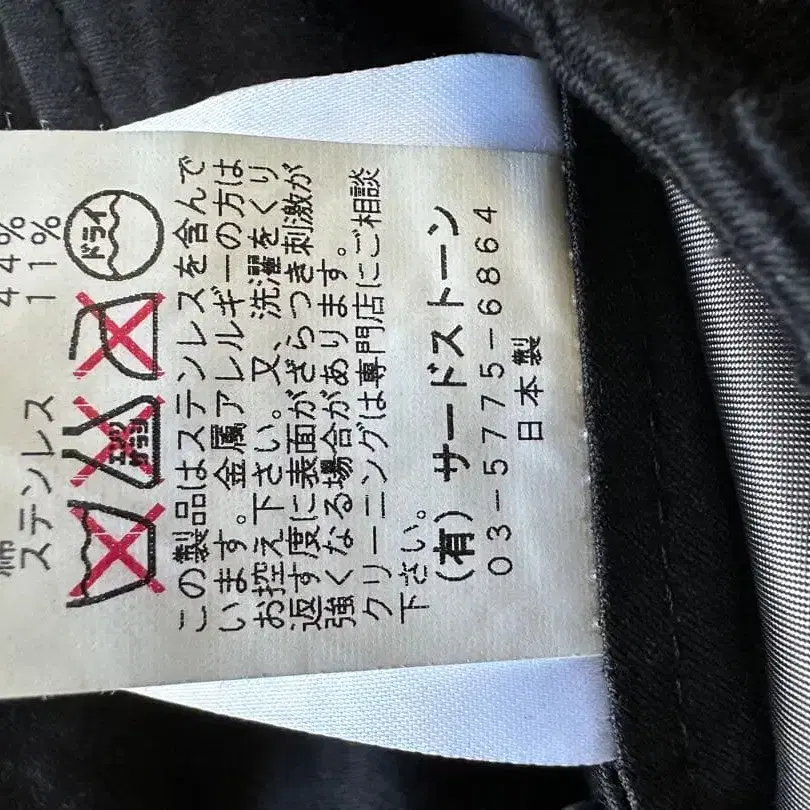 綿 44%
ステンレス 11%
エンソ サラシ
ドライ
この製品はステンレスを含んで
います。金属アレルギーの方は
お控え下さい。又、洗濯をくり
返す度に表面がざらつき刺激が
強くなる場合があります。
クリーニングは専門店にご相談
下さい。
(有) サードストーン
03-5775-6864
日本製